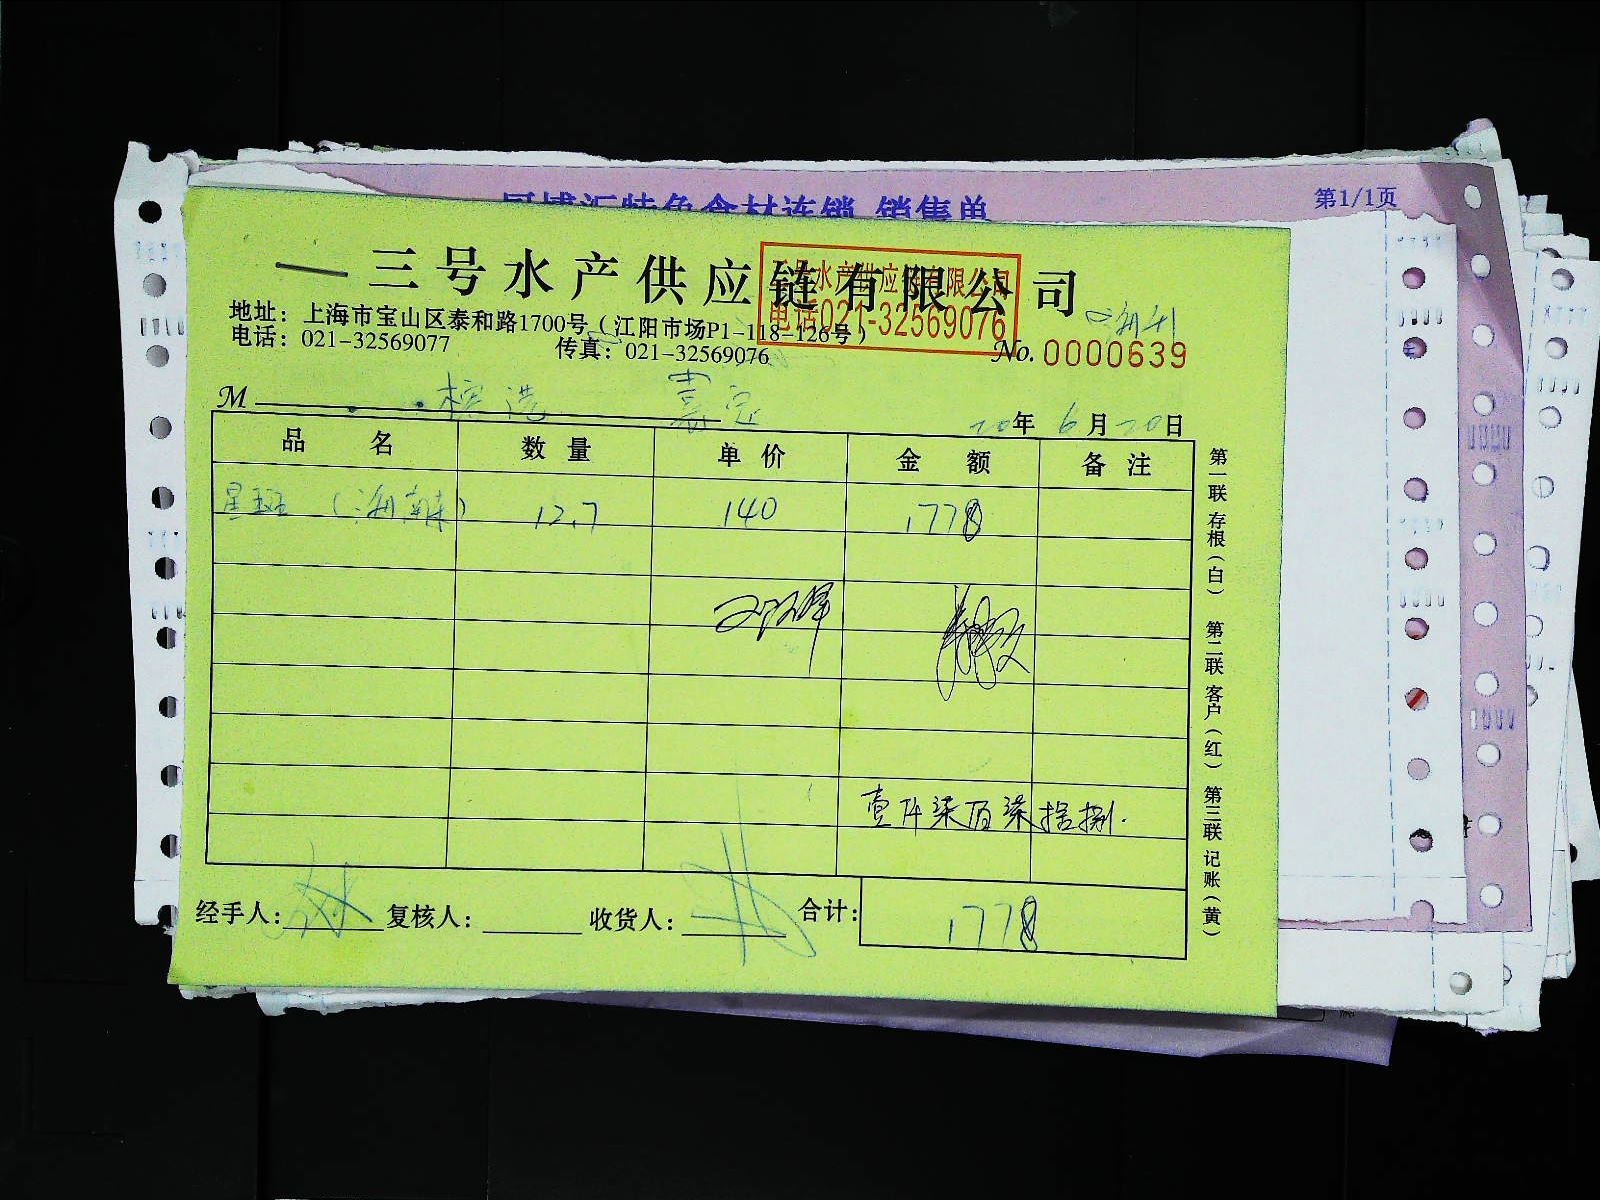 第1/1页
三号水产供应链有限公司
三号水产供应链有限公司
电话021-32569076
地址：上海市宝山区泰和路1700号（江阳市场P1-118-126号）
电话：021-32569077 传真：021-32569076
No.0000639
M 嘉定
20年6月20日
品名 数量 单价 金额 备注
星斑 12.7 140 1778
壹仟柒佰柒拾捌.
经手人： 复核人： 收货人： 合计：1778
第一联 存根（白） 第二联 客户（红） 第三联 记账（黄）